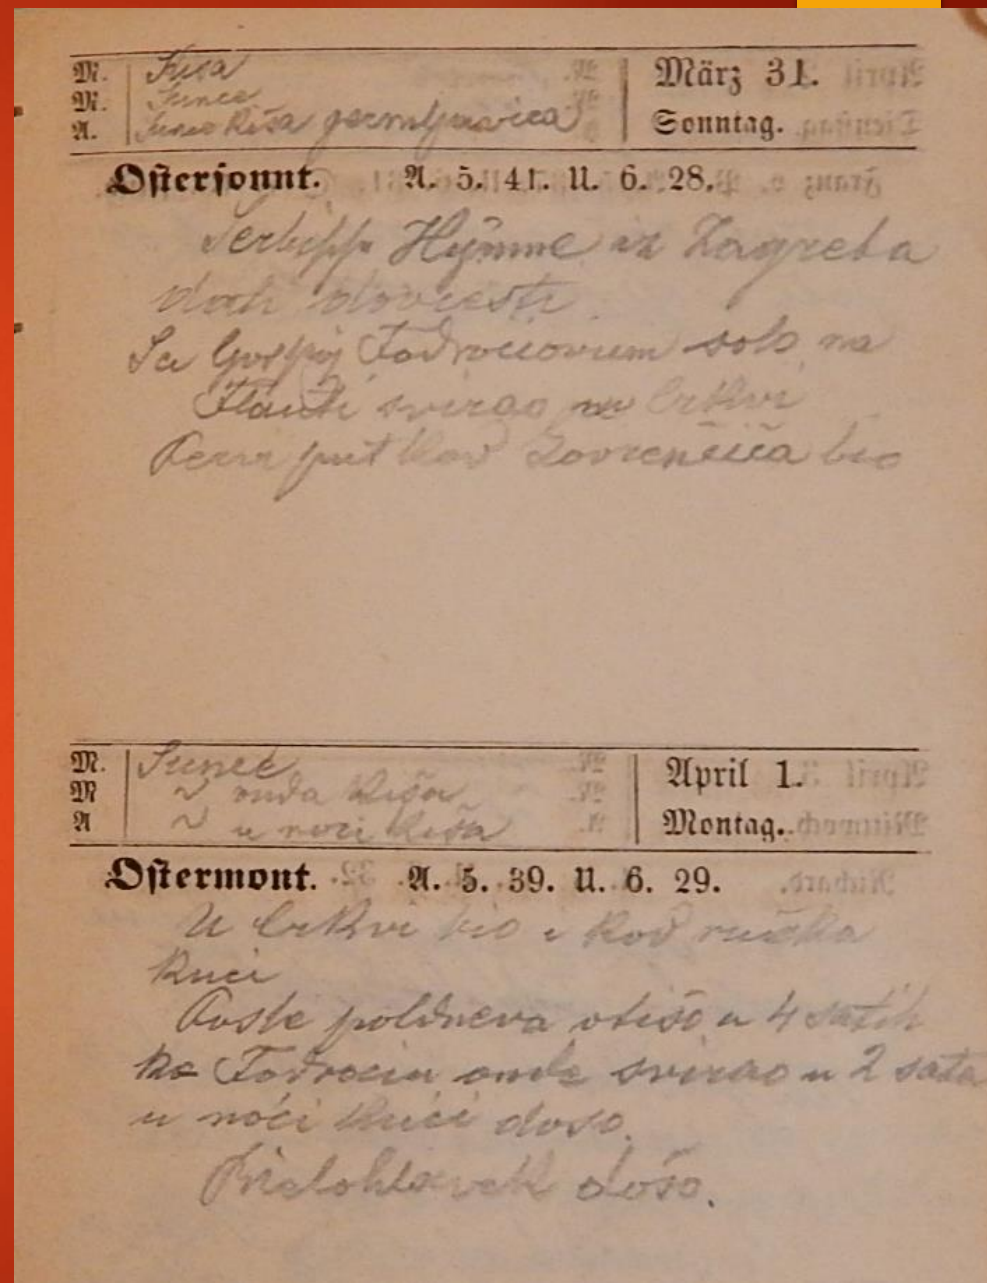 M.
M. Sunce
A. Sunce Kiša germljavica
März 31.
Sonntag.
Ostersonnt. A. 5. 41. U. 6. 28.
Hÿmne iz Zagreba
dovesti
solo na
Flauti svirao u crkvi
put kod Lovrenčića bio
M. Sunce
M ~ onda Kiša
A ~ u noći kiša
April 1.
Montag.
Ostermont. A. 5. 39. U. 6. 29.
U crkvi bio i kod ručka
kući
Posle poldneva otišo u 4 satih
ka onda svirao u 2 sata
u noći kući došo.
došo.